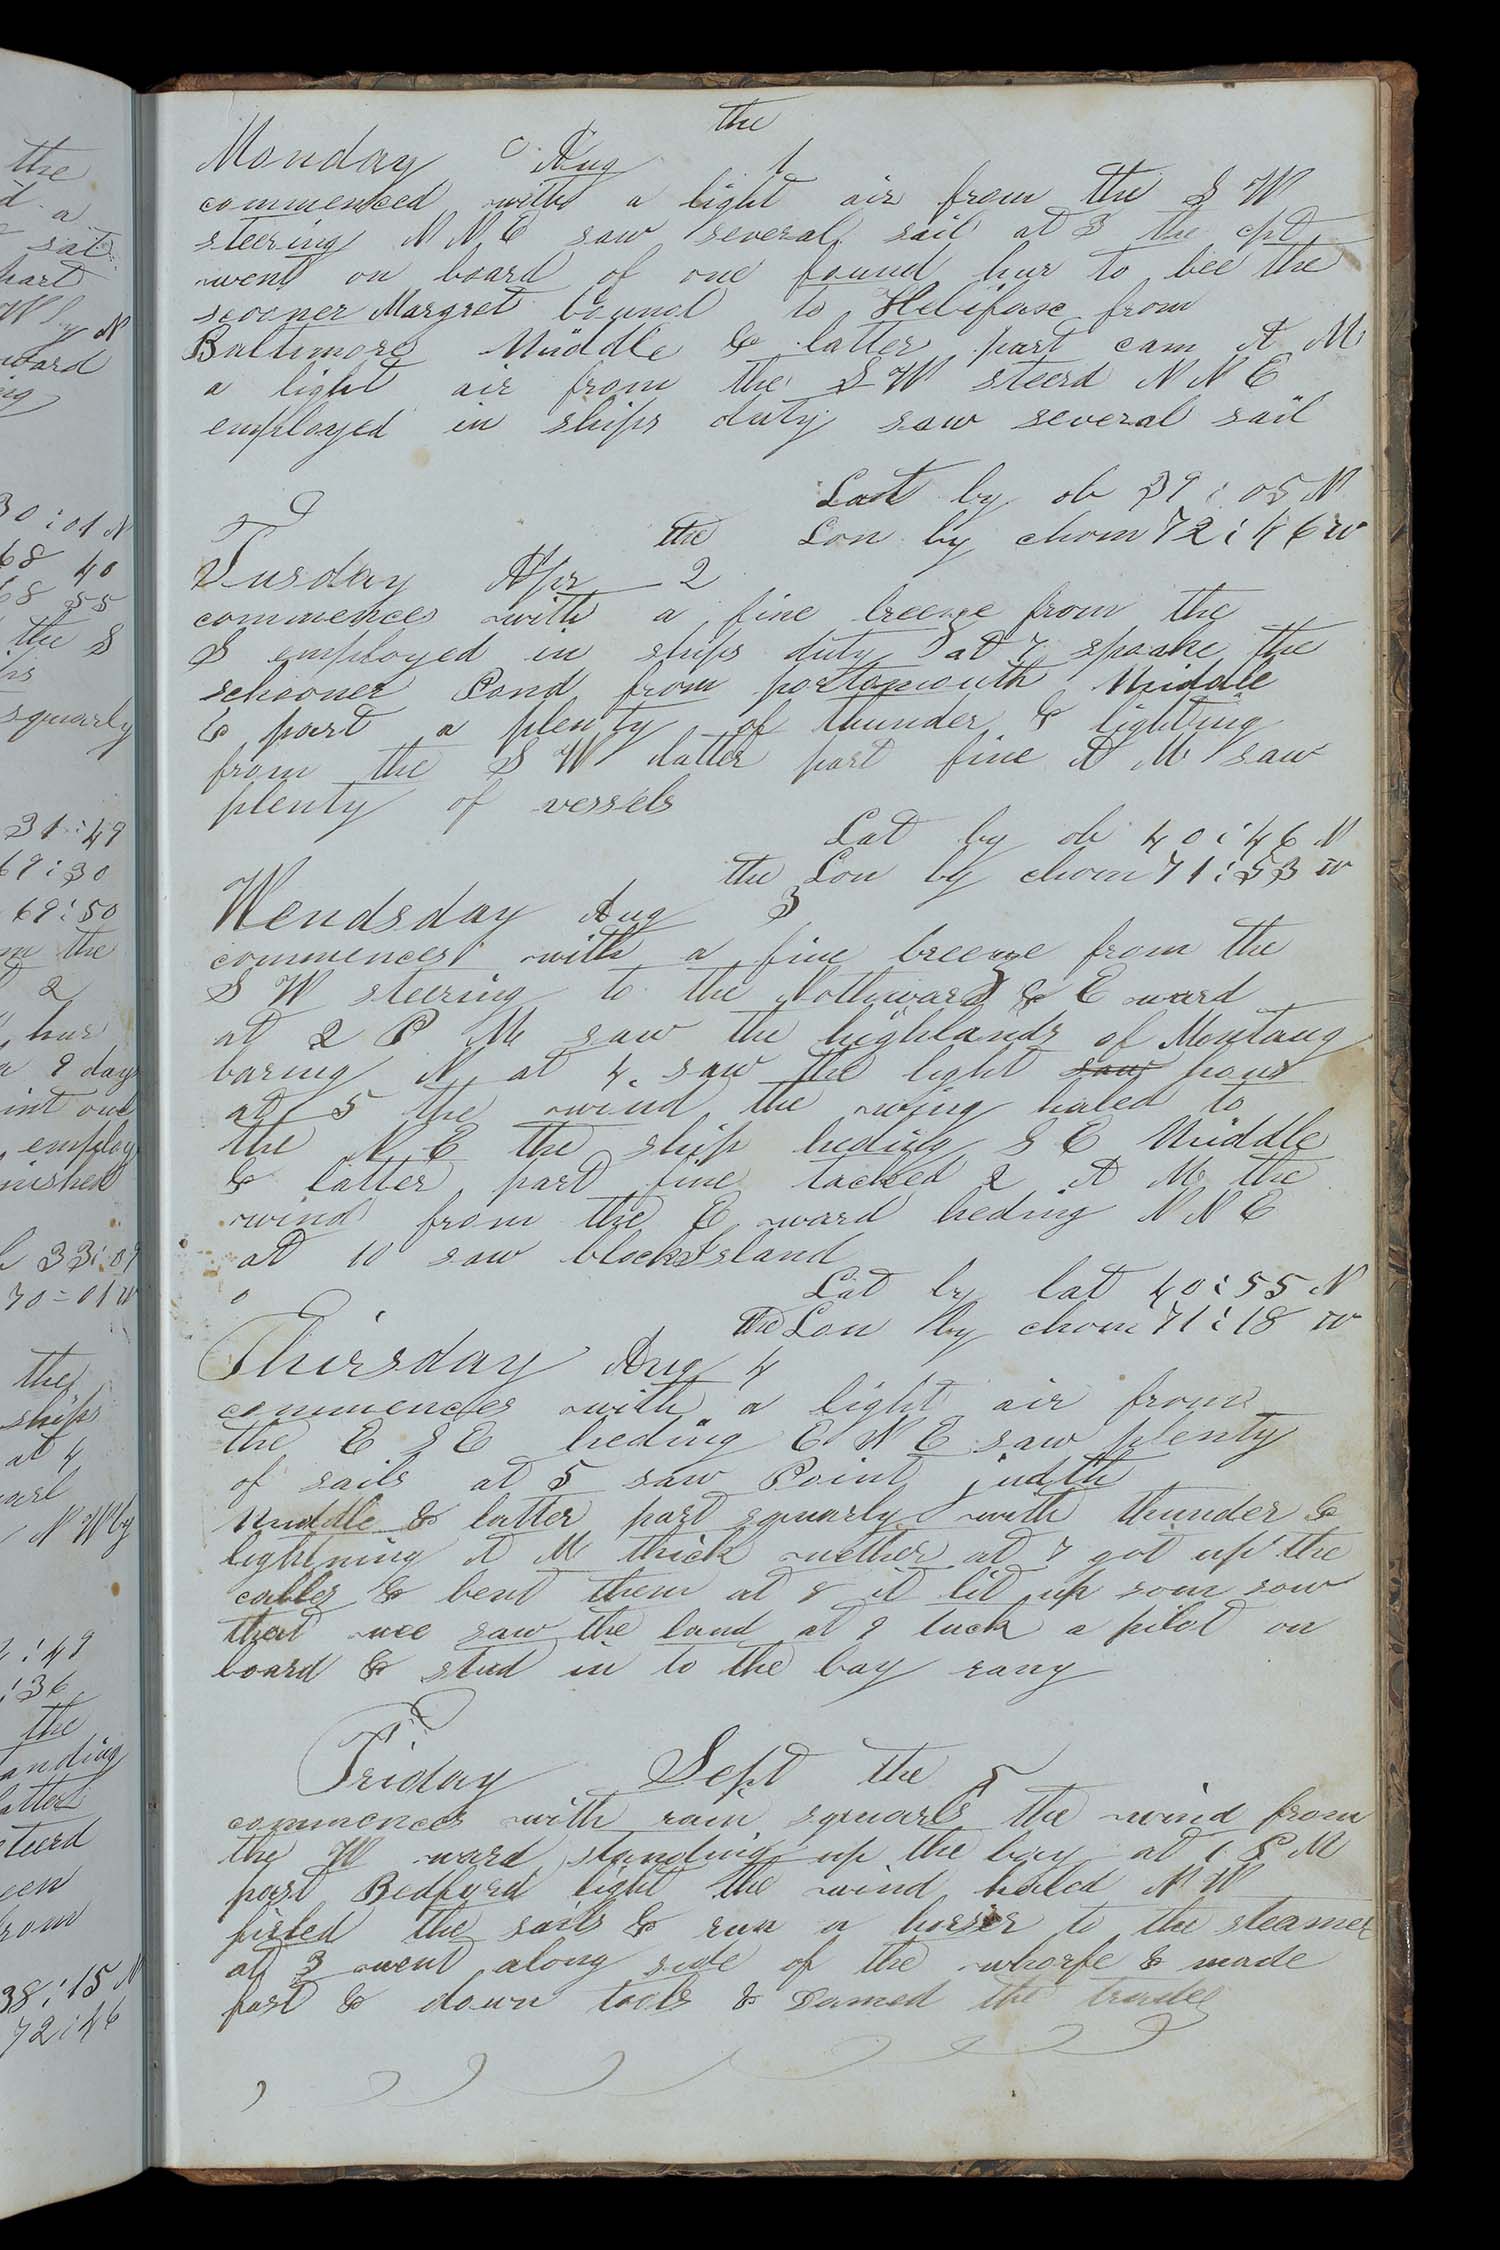 the
d a
sat
part
W by N
ward
ing
30 : 01 N
68 40
68 55
the S
squarly
31 : 49
69 : 30
69 : 50
the
2
hur
9 day
int out
employ
nished
33 : 09
70 = 01 W
the
ships
at 4
N W by
: 49
: 36
the
anding
latter
steerd
een
from
38 : 15 N
72 : 46
the
Monday Aug 1
commenced with a light air from the S W
steering N N E saw several sail at 3 the cpt
went on board of one found hur to bee the
scooner Margret bound to Helifaxe from
Baltimore Middle & latter part cam A M
a light air from the S W steerd N N E
employed in ships duty saw several sail
Lat by ob 39 : 05 N
Lon by chom 72 : 46 W
the
Tusday Apr 2
commences with a fine breeze from the
S employed in ships duty at 7 spoake the
schooner Pond from portsmouth Middle
& part a plenty of thunder & lighting
from the S W latter part fine A M saw
plenty of vessels
Lat by ob 40 : 46 N
the Lon by chom 71 : 53 W
Wendsday Aug 3
commences with a fine breeze from the
S W steering to the Notthward & E ward
at 2 P M saw the highlands of Montaug
baring N at 4 saw the light
at 5 the wind the wing haled to
the N E the ship heding S E Middle
& latter part fine tacked 2 A M the
wind from the E ward heding N N E
at 10 saw block Island
Lat by lat 40 : 55 N
the Lon by chom 71 : 18 W
Thirsday Aug 4
commences with a light air from
the E S E heding E N E saw plenty
of sails at 5 saw Point judth
Middle & latter part squarly with thunder &
lightning A M thick wether at 7 got up the
cables & bent them at 8 it lit up som sow
that wee saw the land at 9 tuck a pilot on
board & stud in to the bay rany
Friday Sept the 5
commences with rain squarls the wind from
the W ward standing up the bay at 1 P M
past Bedford light the wind haled N W
firled the sails & run a horser to the steamer
at 3 went along side of the whorfe & made
fast & down tools & Damed the trade